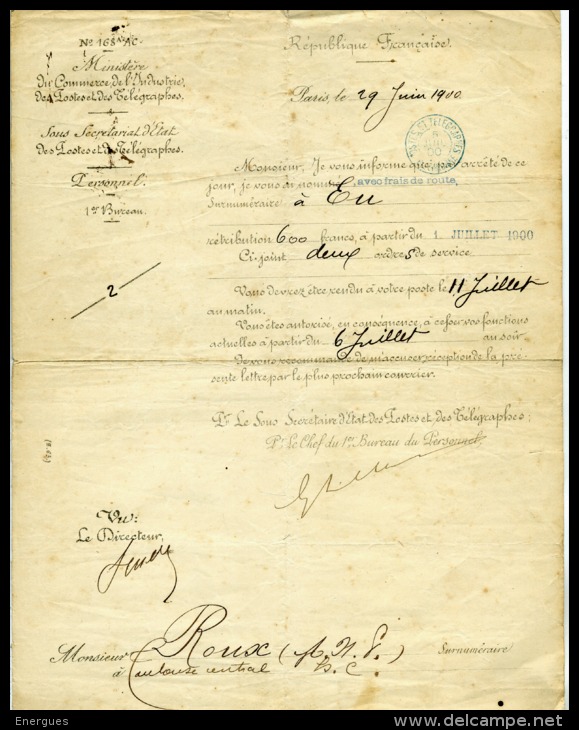 Nº 168 AC.
Ministère
du Commerce, de l'Industrie,
des Postes et des Télégraphes.
Sous Secrétariat d'Etat
des Postes et des Télégraphes.
Personnel.
1er Bureau.
République Française.
Paris, le 29 Juin 1900
POSTES ET TELEGRAPHES
Monsieur, Je vous informe que, par arrêté de ce
jour, je vous ai nommé avec frais de route,
surnuméraire à Eu
rétribution 600 francs, à partir du 1 JUILLET 1900
Ci-joint deux ordres de service
2
Vous devrez être rendu à votre poste le 11 Juillet
au matin.
Vous êtes autorisé, en conséquence, à cesser vos fonctions
actuelles à partir du 6 Juillet au soir
Je vous recommande de m'accuser réception de la pré-
sente lettre par le plus prochain courrier.
Pr. Le Sous Secrétaire d'Etat des Postes et des Télégraphes;
Pr. Le Chef du 1er Bureau du Personnel
Vu:
Le Directeur,
Monsieur Roux (A. H. E.) Surnuméraire
à Toulouse central H. C.
Energues
delcampe.net